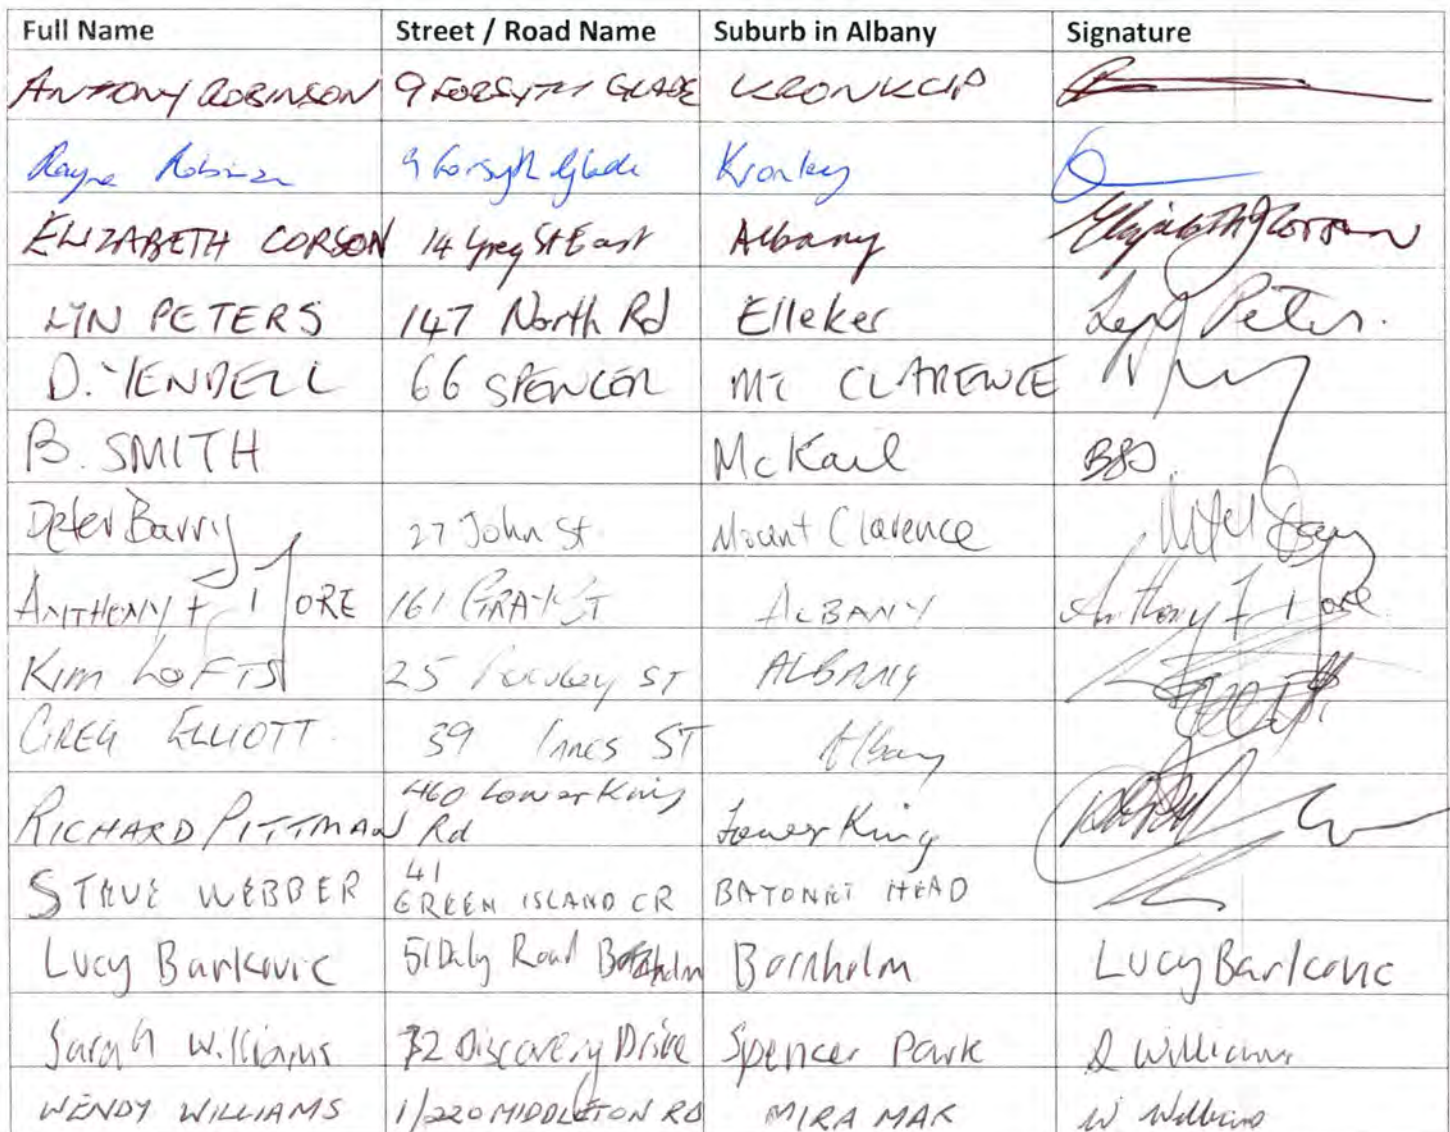 Full Name Street / Road Name Suburb in Albany Signature
ANTONY ROBINSON 9 FORSYTH GLADE KRONKUP
Rayne Robinson 9 Forsyth Glade
ELIZABETH CORSON 14 Grey St East Albany
LYN PETERS 147 North Rd Elleker Peters.
D. YENDELL 66 SPENCER MT CLARENCE
B. SMITH McKail
Peter Barry 27 John St. Mount Clarence
ANTHENY F ORE 161 GRAY ST ALBANY Anthony F
KIM LOFTS 25 ST ALBANY
GREG ELLIOTT. 39 Innes ST Albany
460 Lower King
RICHARD PITTMAN Rd Lower King
41
STEVE WEBBER GREEN ISLAND CR BAYONET HEAD
Lucy Barkovic 51 Daly Road Bornholm Bornholm Lucy Barkovic
Sarah Williams 32 Discovery Drive Spencer Park S Williams
WENDY WILLIAMS 1/220 MIDDLETON RD MIRA MAR W Williams